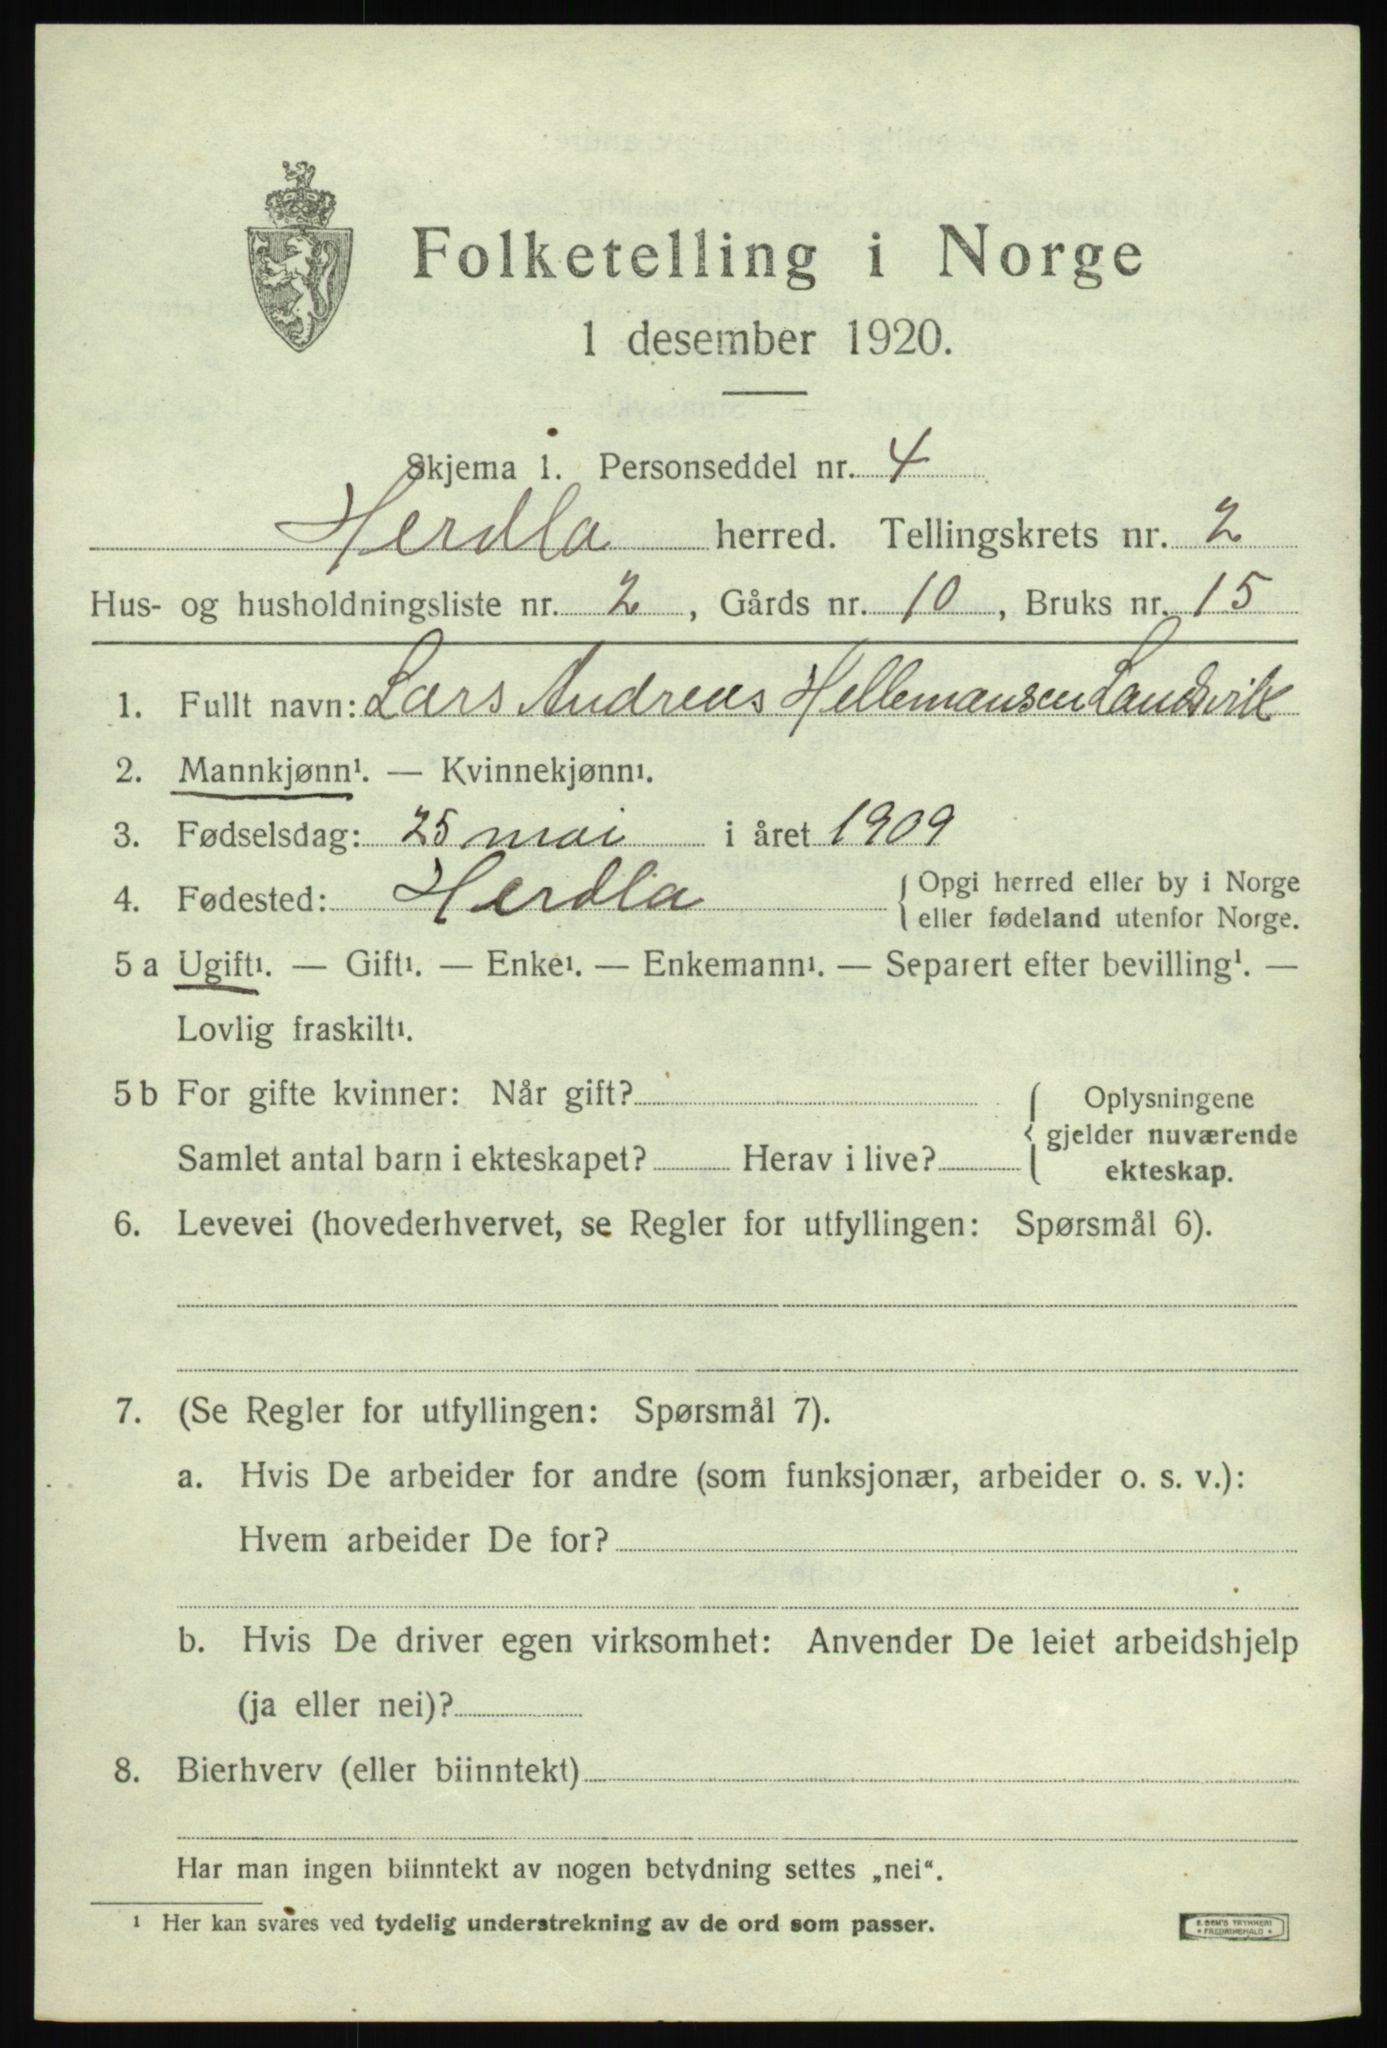 Folketelling i Norge
1 desember 1920.
Skjema 1. Personseddel nr. 4
Herdla herred. Tellingskrets nr. 2
Hus- og husholdningsliste nr. 2, Gårds nr. 10, Bruks nr. 15
1. Fullt navn: Lars Andreas Hellemansen Landsvik
2. Mannkjønn¹. — Kvinnekjønn¹.
3. Fødselsdag: 25 mai i året 1909
4. Fødested: Herdla { Opgi herred eller by i Norge
eller fødeland utenfor Norge.
5 a Ugift¹. — Gift¹. — Enke¹. — Enkemann¹. — Separert efter bevilling¹. —
Lovlig fraskilt¹.
5 b For gifte kvinner: Når gift? { Oplysningene
gjelder nuværende
Samlet antal barn i ekteskapet? Herav i live? ekteskap.
6. Levevei (hovederhvervet, se Regler for utfyllingen: Spørsmål 6).
7. (Se Regler for utfyllingen: Spørsmål 7).
a. Hvis De arbeider for andre (som funksjonær, arbeider o. s. v.):
Hvem arbeider De for?
b. Hvis De driver egen virksomhet: Anvender De leiet arbeidshjelp
(ja eller nei)?
8. Bierhverv (eller biinntekt)
Har man ingen biinntekt av nogen betydning settes „nei“.
¹ Her kan svares ved tydelig understrekning av de ord som passer.
E. SEM'S TRYKKERI
• FREDRIKSHALD •